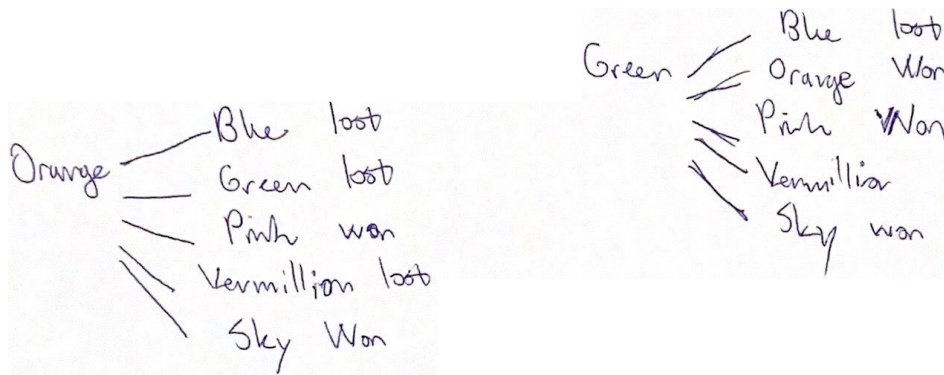 Orange
Blue lost
Green lost
Pink won
Vermillion lost
Sky Won
Green
Blue lost
Orange Won
Pink Won
Vermillion
Sky won